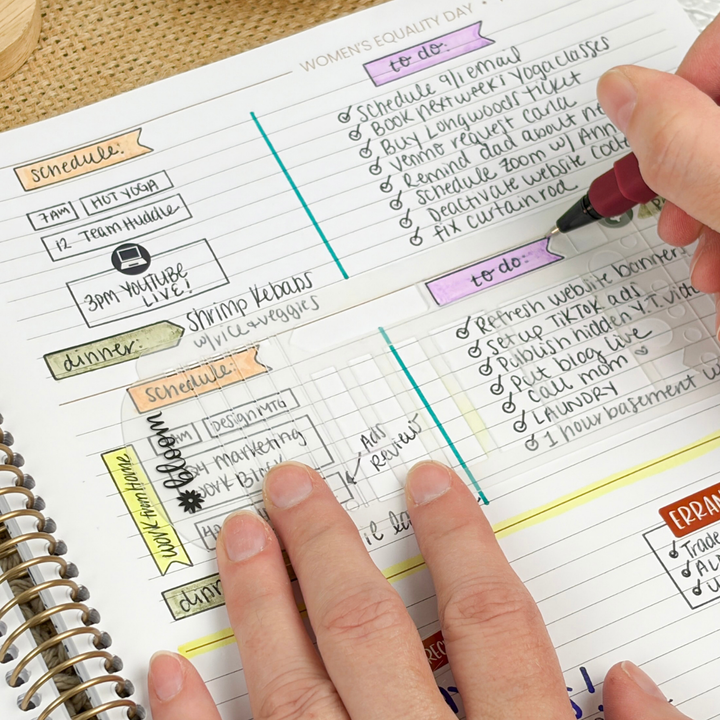 WOMEN'S EQUALITY DAY •
to do:
schedule 9/1 email
Book next week's Yoga classes
Buy Longwoods ticket
venmo request cana
Remind dad about
schedule zoom w/ Ann
Deactivate website
fix curtain rod
schedule:
7AM HOT YOGA
12 Team Huddle
3PM YOUTUBE
LIVE!
dinner:
shrimp Kebabs
w/rice+veggies
to do:
Refresh website banners
setup TIKTOK ads
Publish hidden Y.T.
Put blog live
call mom
LAUNDRY
1 hour basement
schedule:
Design MTG
Marketing
work Block
bloom
Ads
Review
work from home
ERRAN
Trade